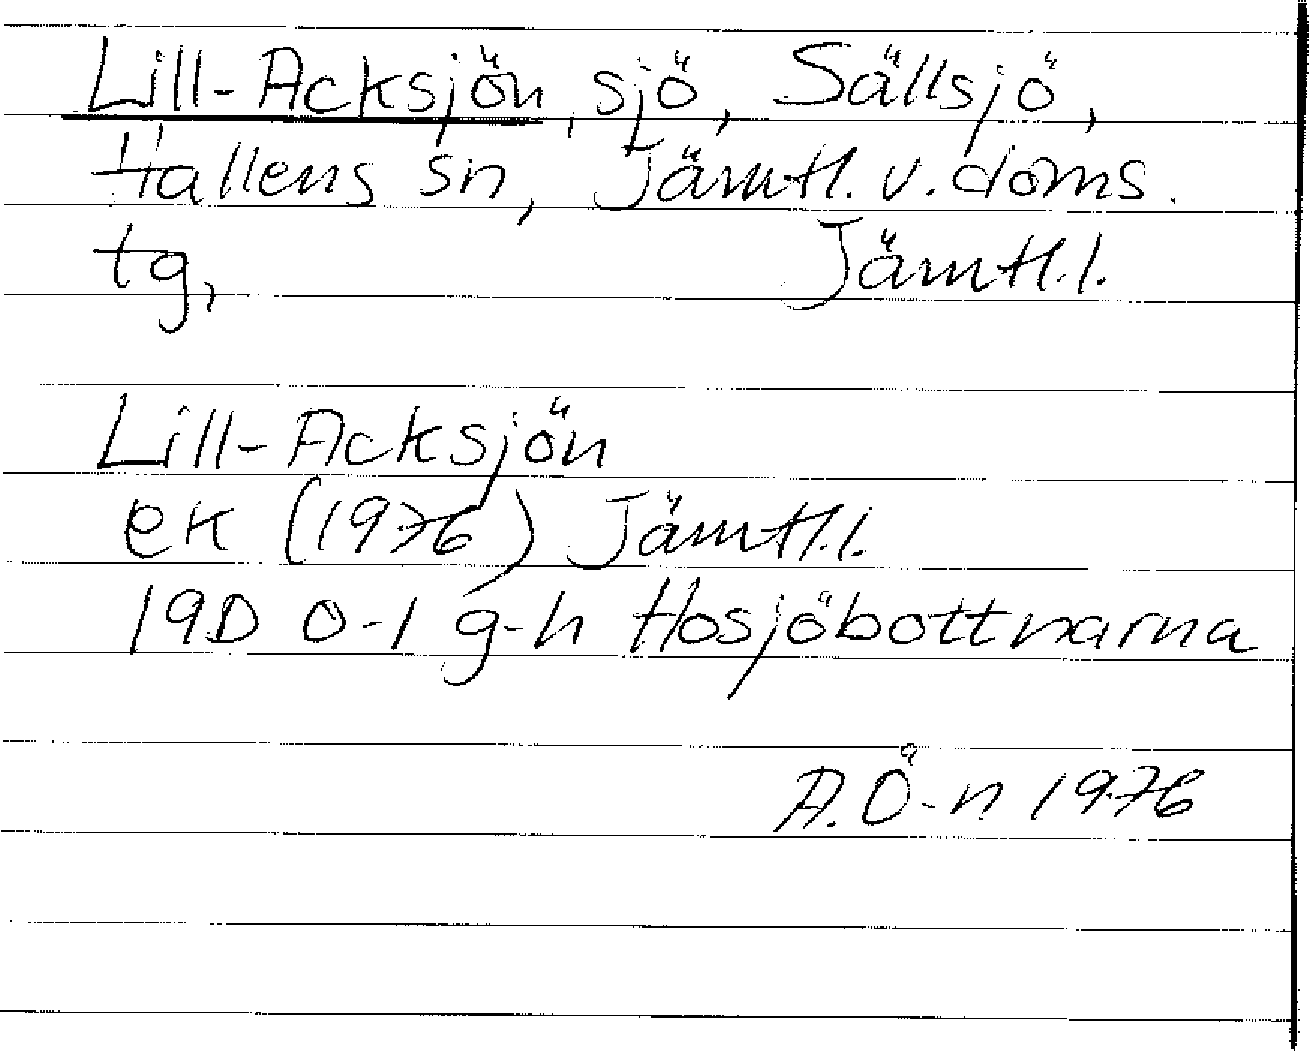 Lill-Acksjön, sjö, Sällsjö,
Hallens sn, Jämtl. v. doms.
tg, Jämtl. l.
Lill-Acksjön
ek (1976) Jämtl. l.
19D 0-1 g-h Hosjöbottnarna
A. Ö-n 1976